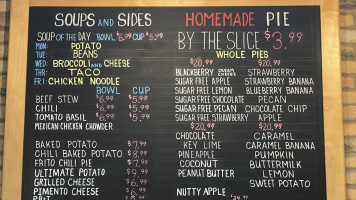 SOUPS AND SIDES
SOUP OF THE DAY BOWL $6.99 CUP $5.99
MON: POTATO
TUE: BEANS
WED: BROCCOLI AND CHEESE
THR: TACO
FRI: CHICKEN NOODLE
BOWL CUP
BEEF STEW $6.99 $5.99
CHILI $6.99 $5.99
TOMATO BASIL $6.99 $5.99
MEXICAN CHICKEN CHOWDER
BAKED POTATO $7.99
CHILI BAKED POTATO $8.99
FRITO CHILI PIE $7.99
ULTIMATE POTATO $9.99
GRILLED CHEESE $6.99
PIMENTO CHEESE $6.99
HOMEMADE PIE
BY THE SLICE $3.99
WHOLE PIES
$20.99 $20.99
BLACKBERRY STRAWBERRY
SUGAR FREE APPLE STRAWBERRY BANANA
SUGAR FREE LEMON BLUEBERRY BANANA
SUGAR FREE CHOCOLATE PECAN
SUGAR FREE PECAN CHOCOLATE CHIP
SUGAR FREE STRAWBERRY APPLE
$20.99 $20.99
CHOCOLATE CARAMEL
KEY LIME CARAMEL BANANA
PINEAPPLE PUMPKIN
COCONUT BUTTERMILK
PEANUT BUTTER LEMON
SWEET POTATO
NUTTY APPLE